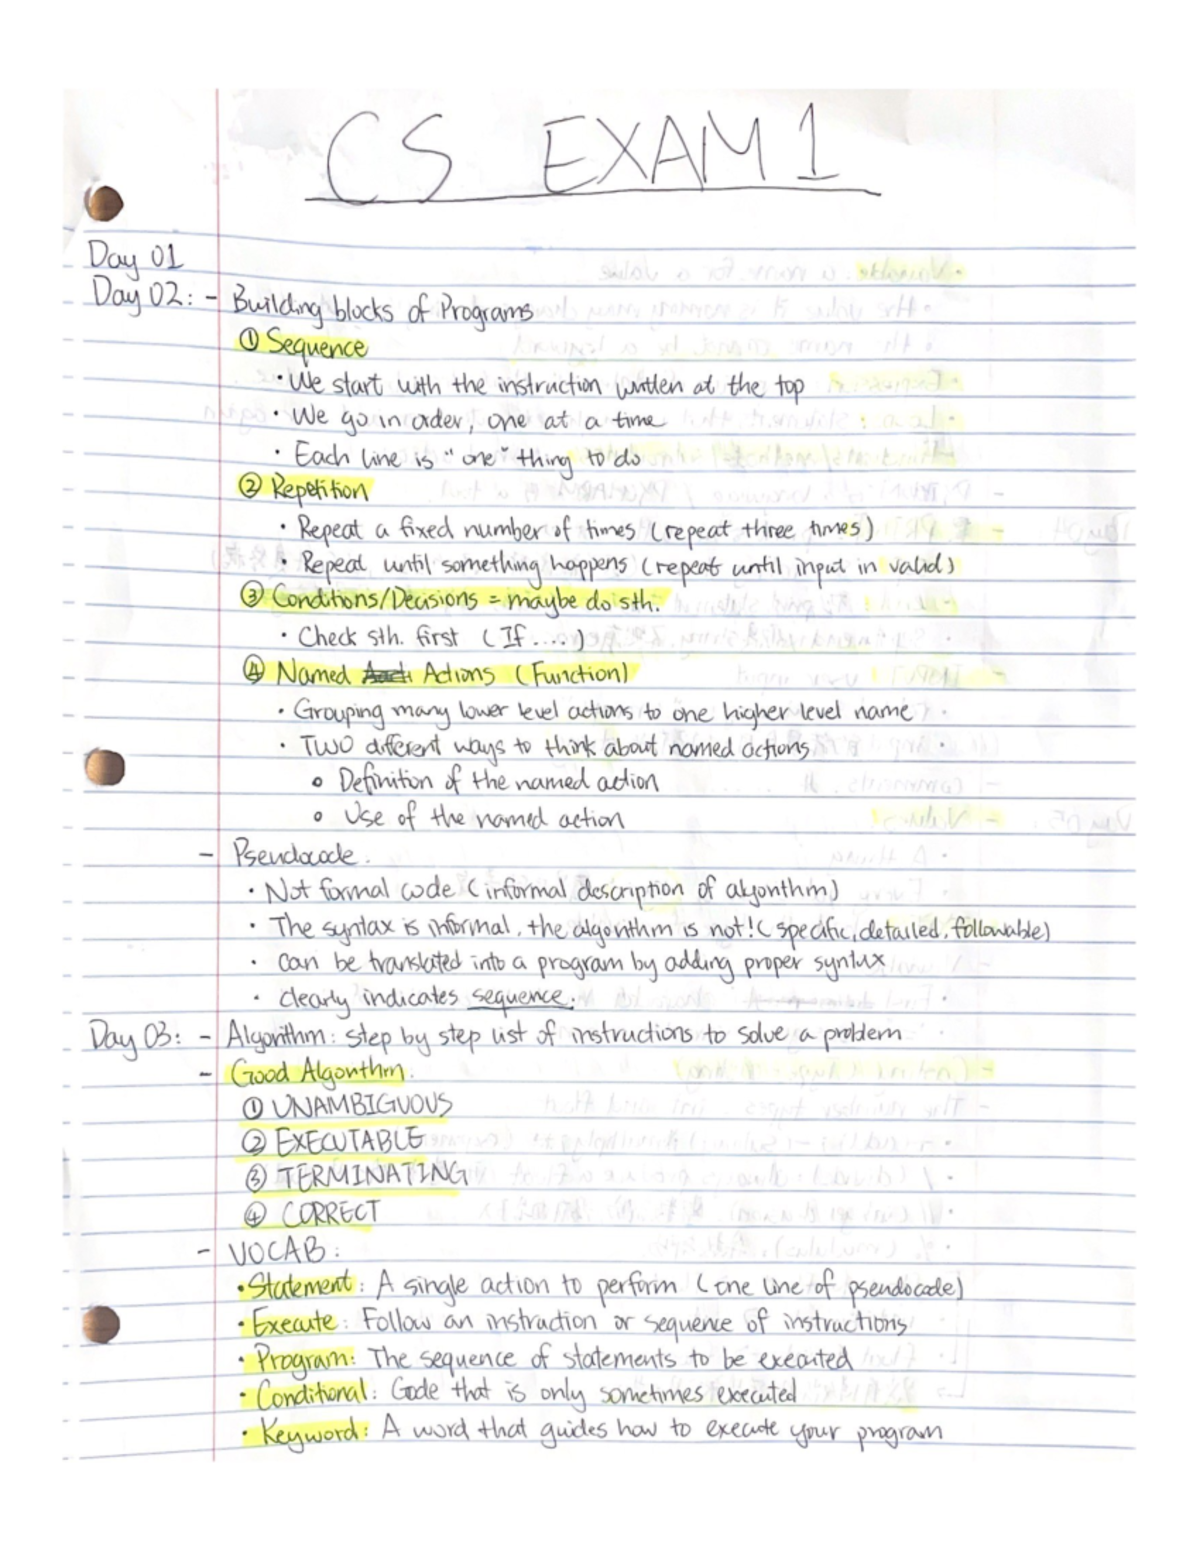 CS EXAM 1
Day 01
Day 02: - Building blocks of Programs
① Sequence
• We start with the instruction written at the top
• We go in order, one at a time
• Each line is "one" thing to do
② Repetition
• Repeat a fixed number of times (repeat three times)
• Repeat until something happens (repeat until input in valid)
③ Conditions/Decisions = maybe do sth.
• Check sth. first (If....)
④ Named Actions (Function)
• Grouping many lower level actions to one higher level name
• TWO different ways to think about named actions
o Definition of the named action
o Use of the named action
- Pseudocode.
• Not formal code (informal description of algorithm)
• The syntax is informal, the algorithm is not! (specific, detailed, followable)
• Can be translated into a program by adding proper syntax
• clearly indicates sequence.
Day 03: - Algorithm: step by step list of instructions to solve a problem
- Good Algorithm:
① UNAMBIGUOUS
② EXECUTABLE
③ TERMINATING
④ CORRECT
- VOCAB:
• Statement: A single action to perform (one line of pseudocode)
• Execute: Follow an instruction or sequence of instructions
• Program: The sequence of statements to be executed
• Conditional: Code that is only sometimes executed
• Keyword: A word that guides how to execute your program